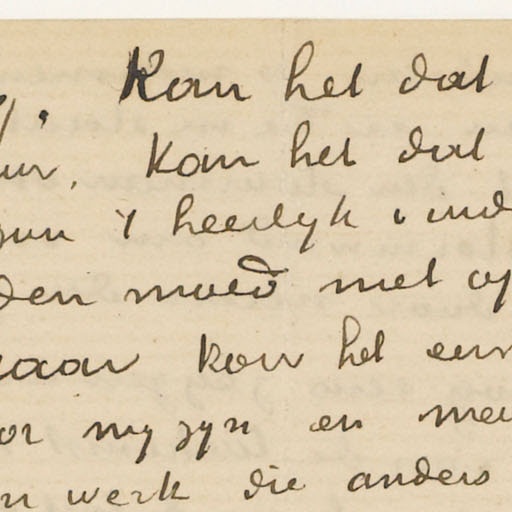 Kan het dat
uur. Kan het dat
zun 't heerlyk vind
den moed met op
kon het een
or my zyn en
n werk die anders